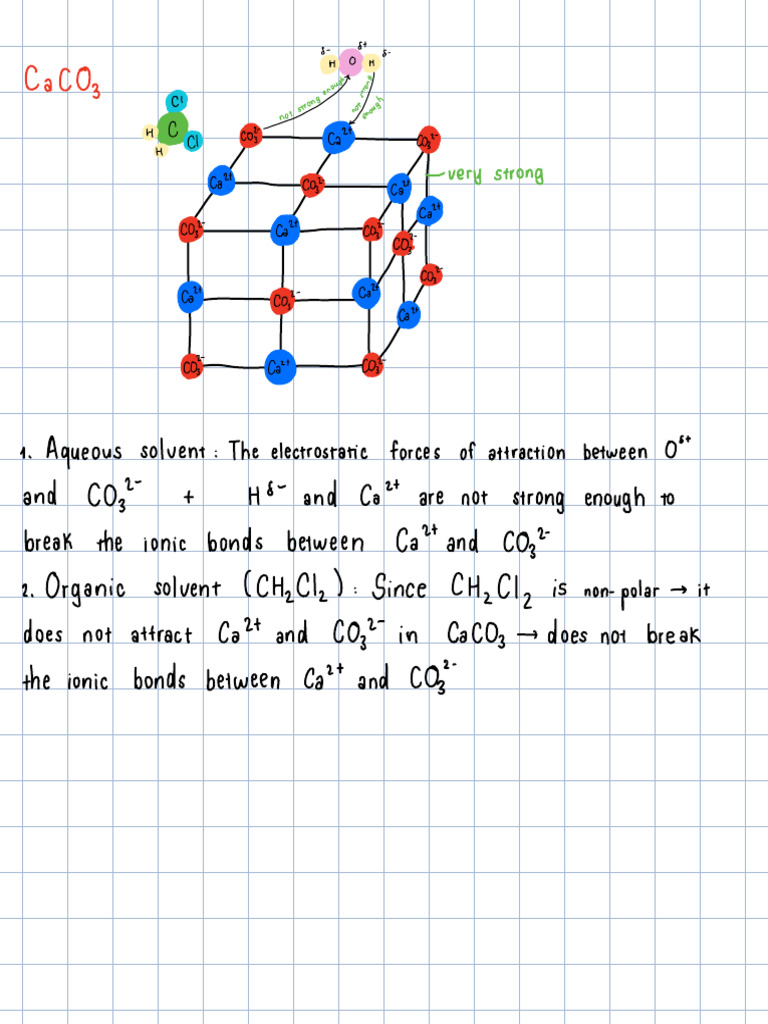 CaCO₃
δ- δ+ δ-
H O H
not strong enough
not strong enough
Cl
H C Cl
H
CO₃²⁻ Ca²⁺ CO₃²⁻
very strong
Ca²⁺ CO₃²⁻ Ca²⁺
Ca²⁺
CO₃²⁻ Ca²⁺ CO₃²⁻
CO₃²⁻
CO₃²⁻
Ca²⁺ CO₃²⁻ Ca²⁺
Ca²⁺
CO₃²⁻ Ca²⁺ CO₃²⁻
1. Aqueous solvent : The electrostatic forces of attraction between O^δ+
and CO₃²⁻ + H^δ- and Ca²⁺ are not strong enough to
break the ionic bonds between Ca²⁺ and CO₃²⁻
2. Organic solvent (CH₂Cl₂) : Since CH₂Cl₂ is non-polar → it
does not attract Ca²⁺ and CO₃²⁻ in CaCO₃ → does not break
the ionic bonds between Ca²⁺ and CO₃²⁻